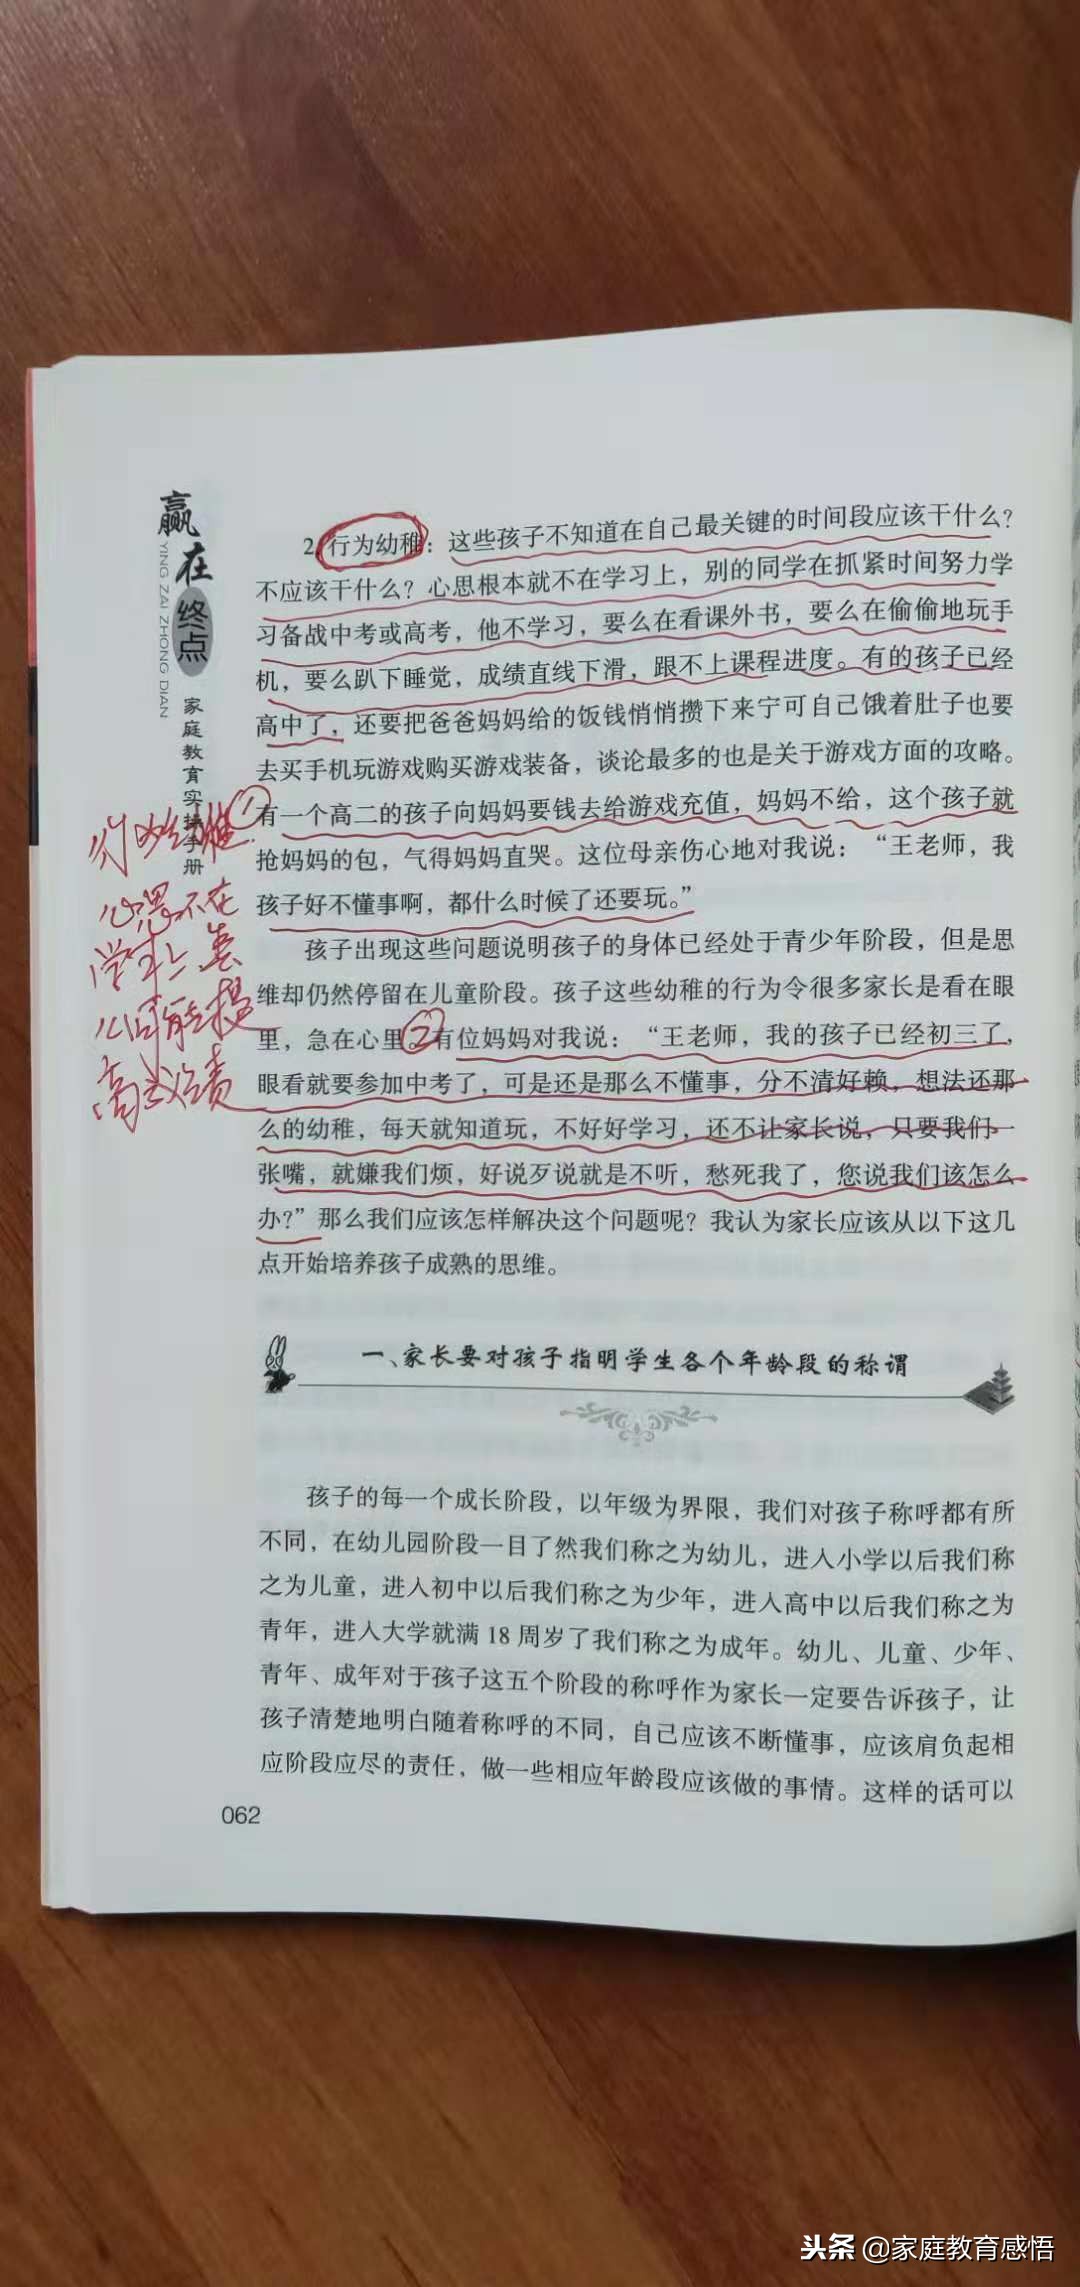 赢在终点
YING ZAI ZHONG DIAN
家庭教育实操手册
2.行为幼稚：这些孩子不知道在自己最关键的时间段应该干什么？
不应该干什么？心思根本就不在学习上，别的同学在抓紧时间努力学
习备战中考或高考，他不学习，要么在看课外书，要么在偷偷地玩手
机，要么趴下睡觉，成绩直线下滑，跟不上课程进度。有的孩子已经
高中了，还要把爸爸妈妈给的饭钱悄悄攒下来宁可自己饿着肚子也要
去买手机玩游戏购买游戏装备，谈论最多的也是关于游戏方面的攻略。
①有一个高二的孩子向妈妈要钱去给游戏充值，妈妈不给，这个孩子就
抢妈妈的包，气得妈妈直哭。这位母亲伤心地对我说：“王老师，我
孩子好不懂事啊，都什么时候了还要玩。”
孩子出现这些问题说明孩子的身体已经处于青少年阶段，但是思
维却仍然停留在儿童阶段。孩子这些幼稚的行为令很多家长是看在眼
里，急在心里。②有位妈妈对我说：“王老师，我的孩子已经初三了，
眼看就要参加中考了，可是还是那么不懂事，分不清好赖，想法还那
么的幼稚，每天就知道玩，不好好学习，还不让家长说，只要我们一
张嘴，就嫌我们烦，好说歹说就是不听，愁死我了，您说我们该怎么
办？”那么我们应该怎样解决这个问题呢？我认为家长应该从以下这几
点开始培养孩子成熟的思维。
行为幼稚
心思不在
学习上，怎
么可能提
高成绩
一、家长要对孩子指明学生各个年龄段的称谓
孩子的每一个成长阶段，以年级为界限，我们对孩子称呼都有所
不同，在幼儿园阶段一目了然我们称之为幼儿，进入小学以后我们称
之为儿童，进入初中以后我们称之为少年，进入高中以后我们称之为
青年，进入大学就满 18 周岁了我们称之为成年。幼儿、儿童、少年、
青年、成年对于孩子这五个阶段的称呼作为家长一定要告诉孩子，让
孩子清楚地明白随着称呼的不同，自己应该不断懂事，应该肩负起相
应阶段应尽的责任，做一些相应年龄段应该做的事情。这样的话可以
062
头条 @家庭教育感悟